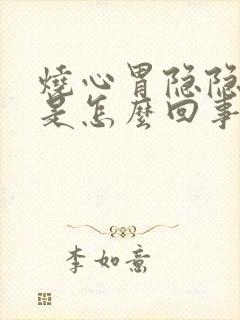 燒心胃隐隐
是怎麼回事
李如意